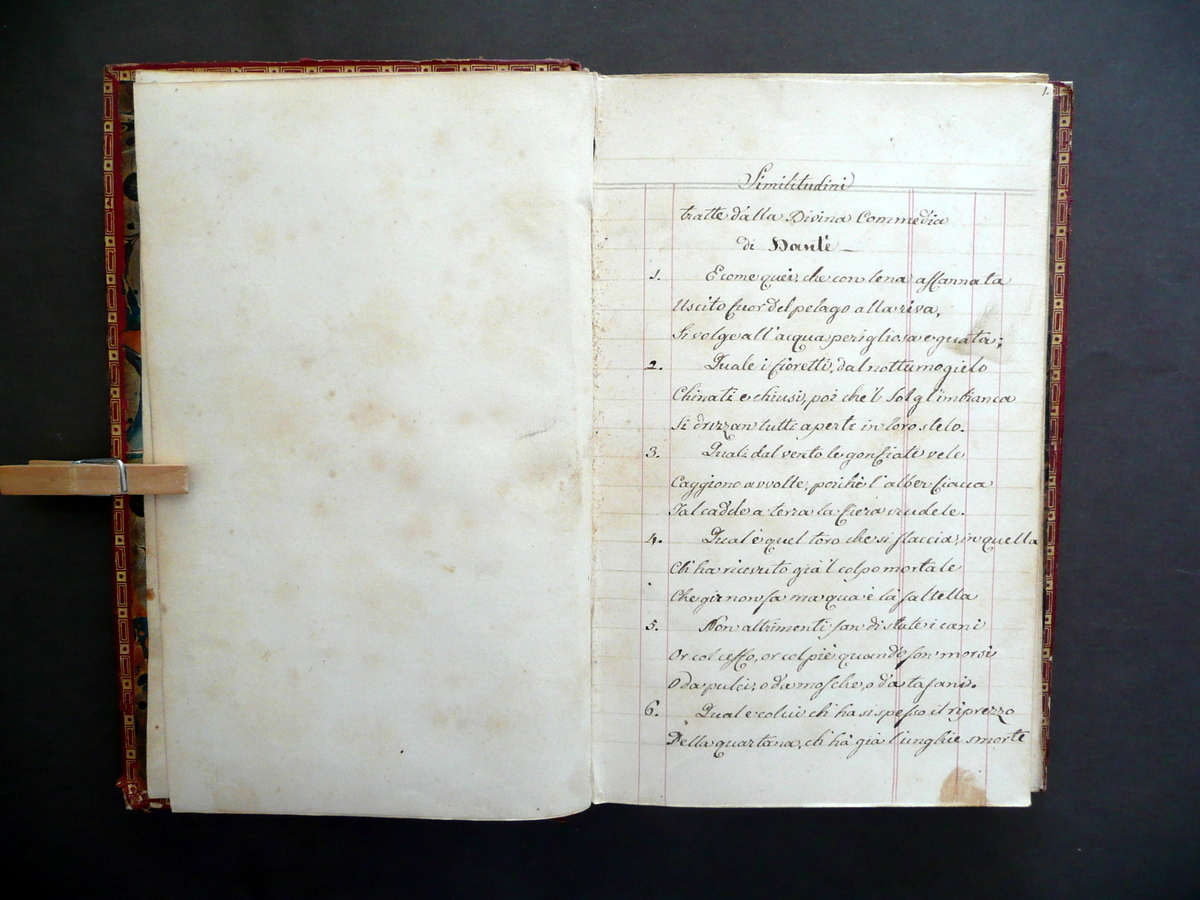 1.
Similitudini
tratte dalla Divina Commedia
di Dante
1. E come quei, che con lena affannata
Uscito fuor del pelago alla riva,
Si volge all'acqua perigliosa e guata;
2. Quale i fioretti, dal notturno gielo
Chinati e chiusi, poi che 'l Sol gl'imbianca
Si drizzan tutti aperti in loro stelo.
3. Quali dal vento le gonfiate vele
Caggiono avvolte, poichè l'alber fiacca
Tal cadde a terra la fiera crudele.
4. Qual è quel toro che si slaccia, in quella
Ch'ha ricevuto già 'l colpo mortale
Che gir non sa ma qua è là saltella
5. Non altrimenti fan di state i cani
Or col ceffo, or col piè quando son morsi
O da pulci, o da mosche, o da tafani.
6. Qual è colui ch'ha si spesso il riprezzo
Della quartana, ch'hà già l'unghie smorte